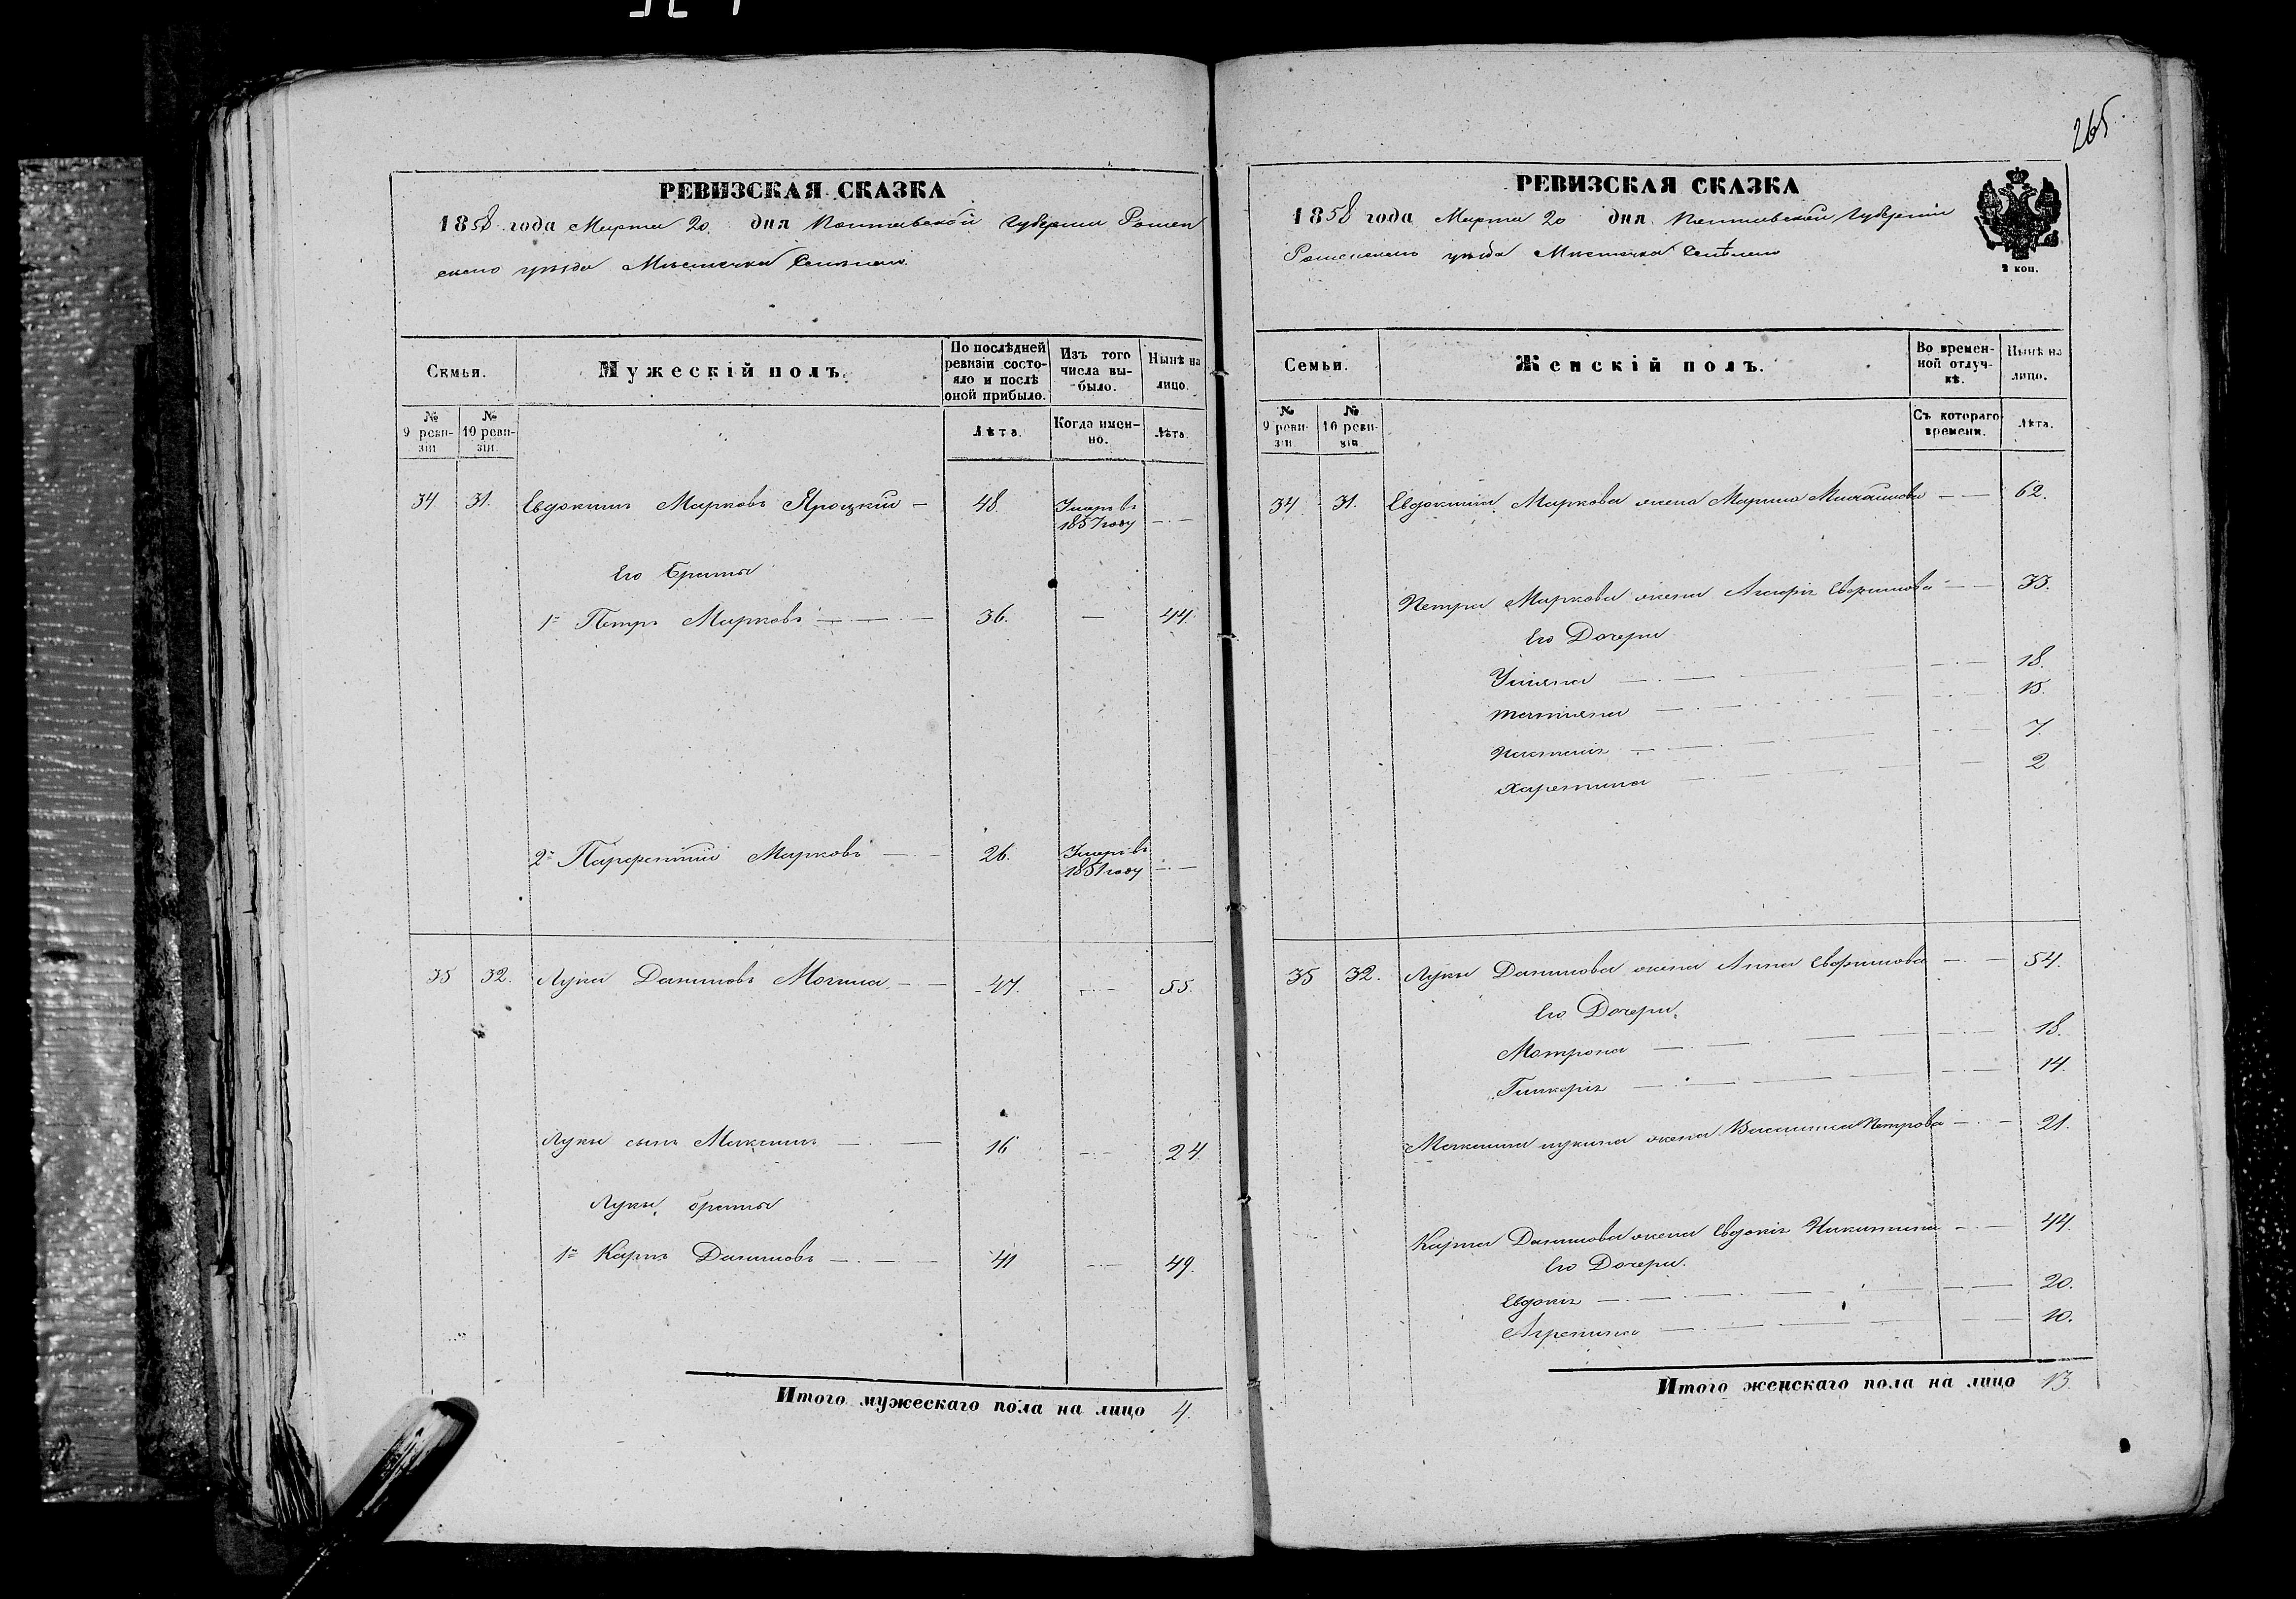 265
РЕВИЗСКАЯ СКАЗКА
1858 года Марта 20 дня Полтавской Губернии Ромен
скаго уѣзда Мѣстечка
Семьи.
Мужескій полъ.
По послѣдней ревизіи состояло и послѣ оной прибыло.
Изъ того числа выбыло.
Нынѣ на лицо.
№ 9 ревизіи
№ 10 ревизіи.
Лѣта.
Когда именно.
Лѣта.
34. 31. Евдокимъ Марковъ Яроцкій — 48. Умеръ въ 1857 году —
Его Братья
1й Петръ Марковъ — 36. — 44.
2й Парфентій Марковъ — 26. Умеръ въ 1851 году —
35 32. Лука Даниловъ Могила — 47. — 55.
Луки сынъ Максимъ — 16 — 24.
Луки братья
1й Карпъ Даниловъ — 41 — 49.
Итого мужескаго пола на лицо 4.
РЕВИЗСКАЯ СКАЗКА
1858 года Марта 20 дня Полтавской Губерніи
Роменскаго уѣзда Мѣстечка
2 коп.
Семьи.
Женскій полъ.
Во временной отлучкѣ.
Нынѣ на лицо.
№ 9 ревизіи
№ 10 ревизія
Съ котораго времени.
Лѣта.
34 31. Евдокима Маркова жена Марина — 62.
Петра Маркова жена — 33.
Его Дочери
Ульяна — 18.
Татьяна — 15.
Настасія — 7.
Харитина — 2
35 32. Луки Данилова жена Анна — 54.
Его Дочери.
Мотрона — 18.
Гликерія — 14.
Максима Лукина жена Василиса Петрова — 21.
Карпа Данилова жена Евдокія Никитина — 44.
Его Дочери.
Евдокія — 20.
Агрепина — 10.
Итого женскаго пола на лицо 13